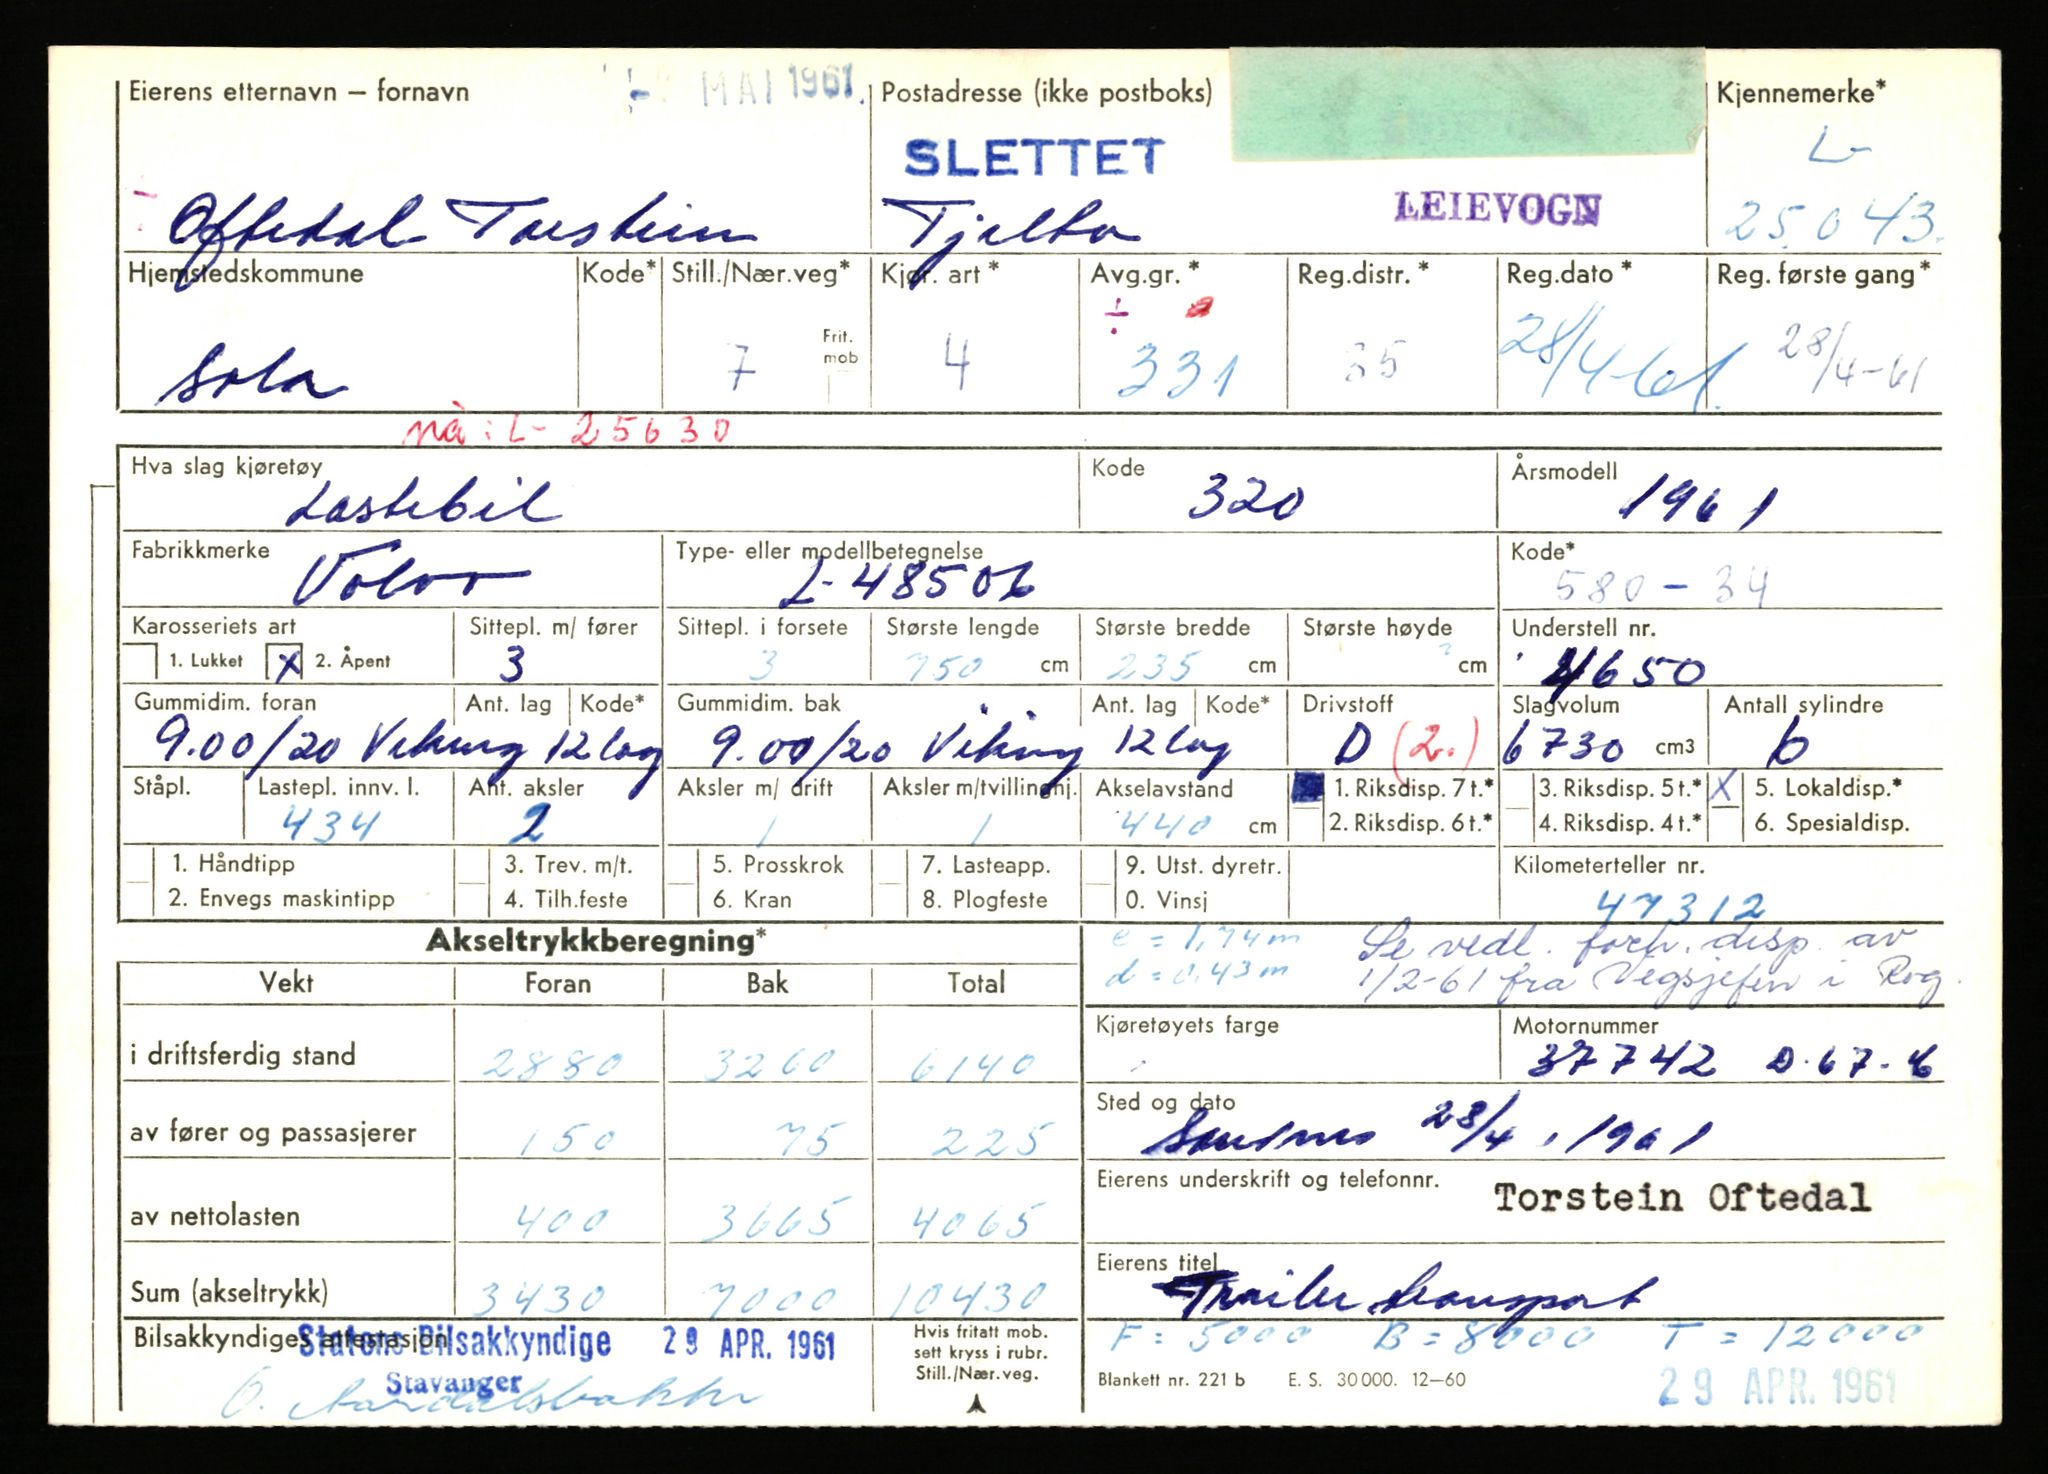 Eierens etternavn – fornavn MAI 1961 Postadresse (ikke postboks) Kjennemerke*
SLETTET L-
Oftedal Torstein Tjelta LEIEVOGN 25.043.
Hjemstedskommune Kode* Still./Nær.veg* Kjør. art* Avg.gr.* Reg.distr.* Reg.dato* Reg. første gang*
Sola 7 Frit. mob 4 331 35 28/4-61. 28/4-61
nå: L- 25630
Hva slag kjøretøy Kode Årsmodell
Lastebil 320 1961
Fabrikkmerke Type- eller modellbetegnelse Kode*
Volvo L-48506 580-34
Karosseriets art Sittepl. m/ fører Sittepl. i forsete Største lengde Største bredde Største høyde Understell nr.
1. Lukket X 2. Åpent 3 3 750 cm 235 cm cm 4650
Gummidim. foran Ant. lag Kode* Gummidim. bak Ant. lag Kode* Drivstoff Slagvolum Antall sylindre
9.00/20 Viking 12 lag 9.00/20 Viking 12 lag D (2.) 6730 cm3 6
Ståpl. Lastepl. innv. l. Ant. aksler Aksler m/ drift Aksler m/tvillinghj. Akselavstand 1. Riksdisp. 7 t.* 3. Riksdisp. 5 t.* X 5. Lokaldisp.*
434 2 1 1 440 cm 2. Riksdisp. 6 t.* 4. Riksdisp. 4 t.* 6. Spesialdisp.
1. Håndtipp 3. Trev. m/t. 5. Prosskrok 7. Lasteapp. 9. Utst. dyretr. Kilometerteller nr.
2. Envegs maskintipp 4. Tilh.feste 6. Kran 8. Plogfeste 0. Vinsj 47312
Akseltrykkberegning* e = 1,74 m Se vedl. forh. disp. av
Vekt Foran Bak Total d = 0,43 m 1/2-61 fra Vegsjefen i Rog.
Kjøretøyets farge Motornummer
i driftsferdig stand 2880 3260 6140 37742 D-67-6
Sted og dato
av fører og passasjerer 150 75 225 Sandnes 28/4 1961
Eierens underskrift og telefonnr. Torstein Oftedal
av nettolasten 400 3665 4065
Eierens titel
Sum (akseltrykk) 3430 7000 10430 Trailer transport
Bilsakkyndiges attestasjon Statens Bilsakkyndige 29 APR. 1961 Hvis fritatt mob. sett kryss i rubr. Still./Nær.veg. F = 5000 B = 8000 T = 12000
Stavanger Blankett nr. 221 b E. S. 30 000. 12–60 29 APR. 1961